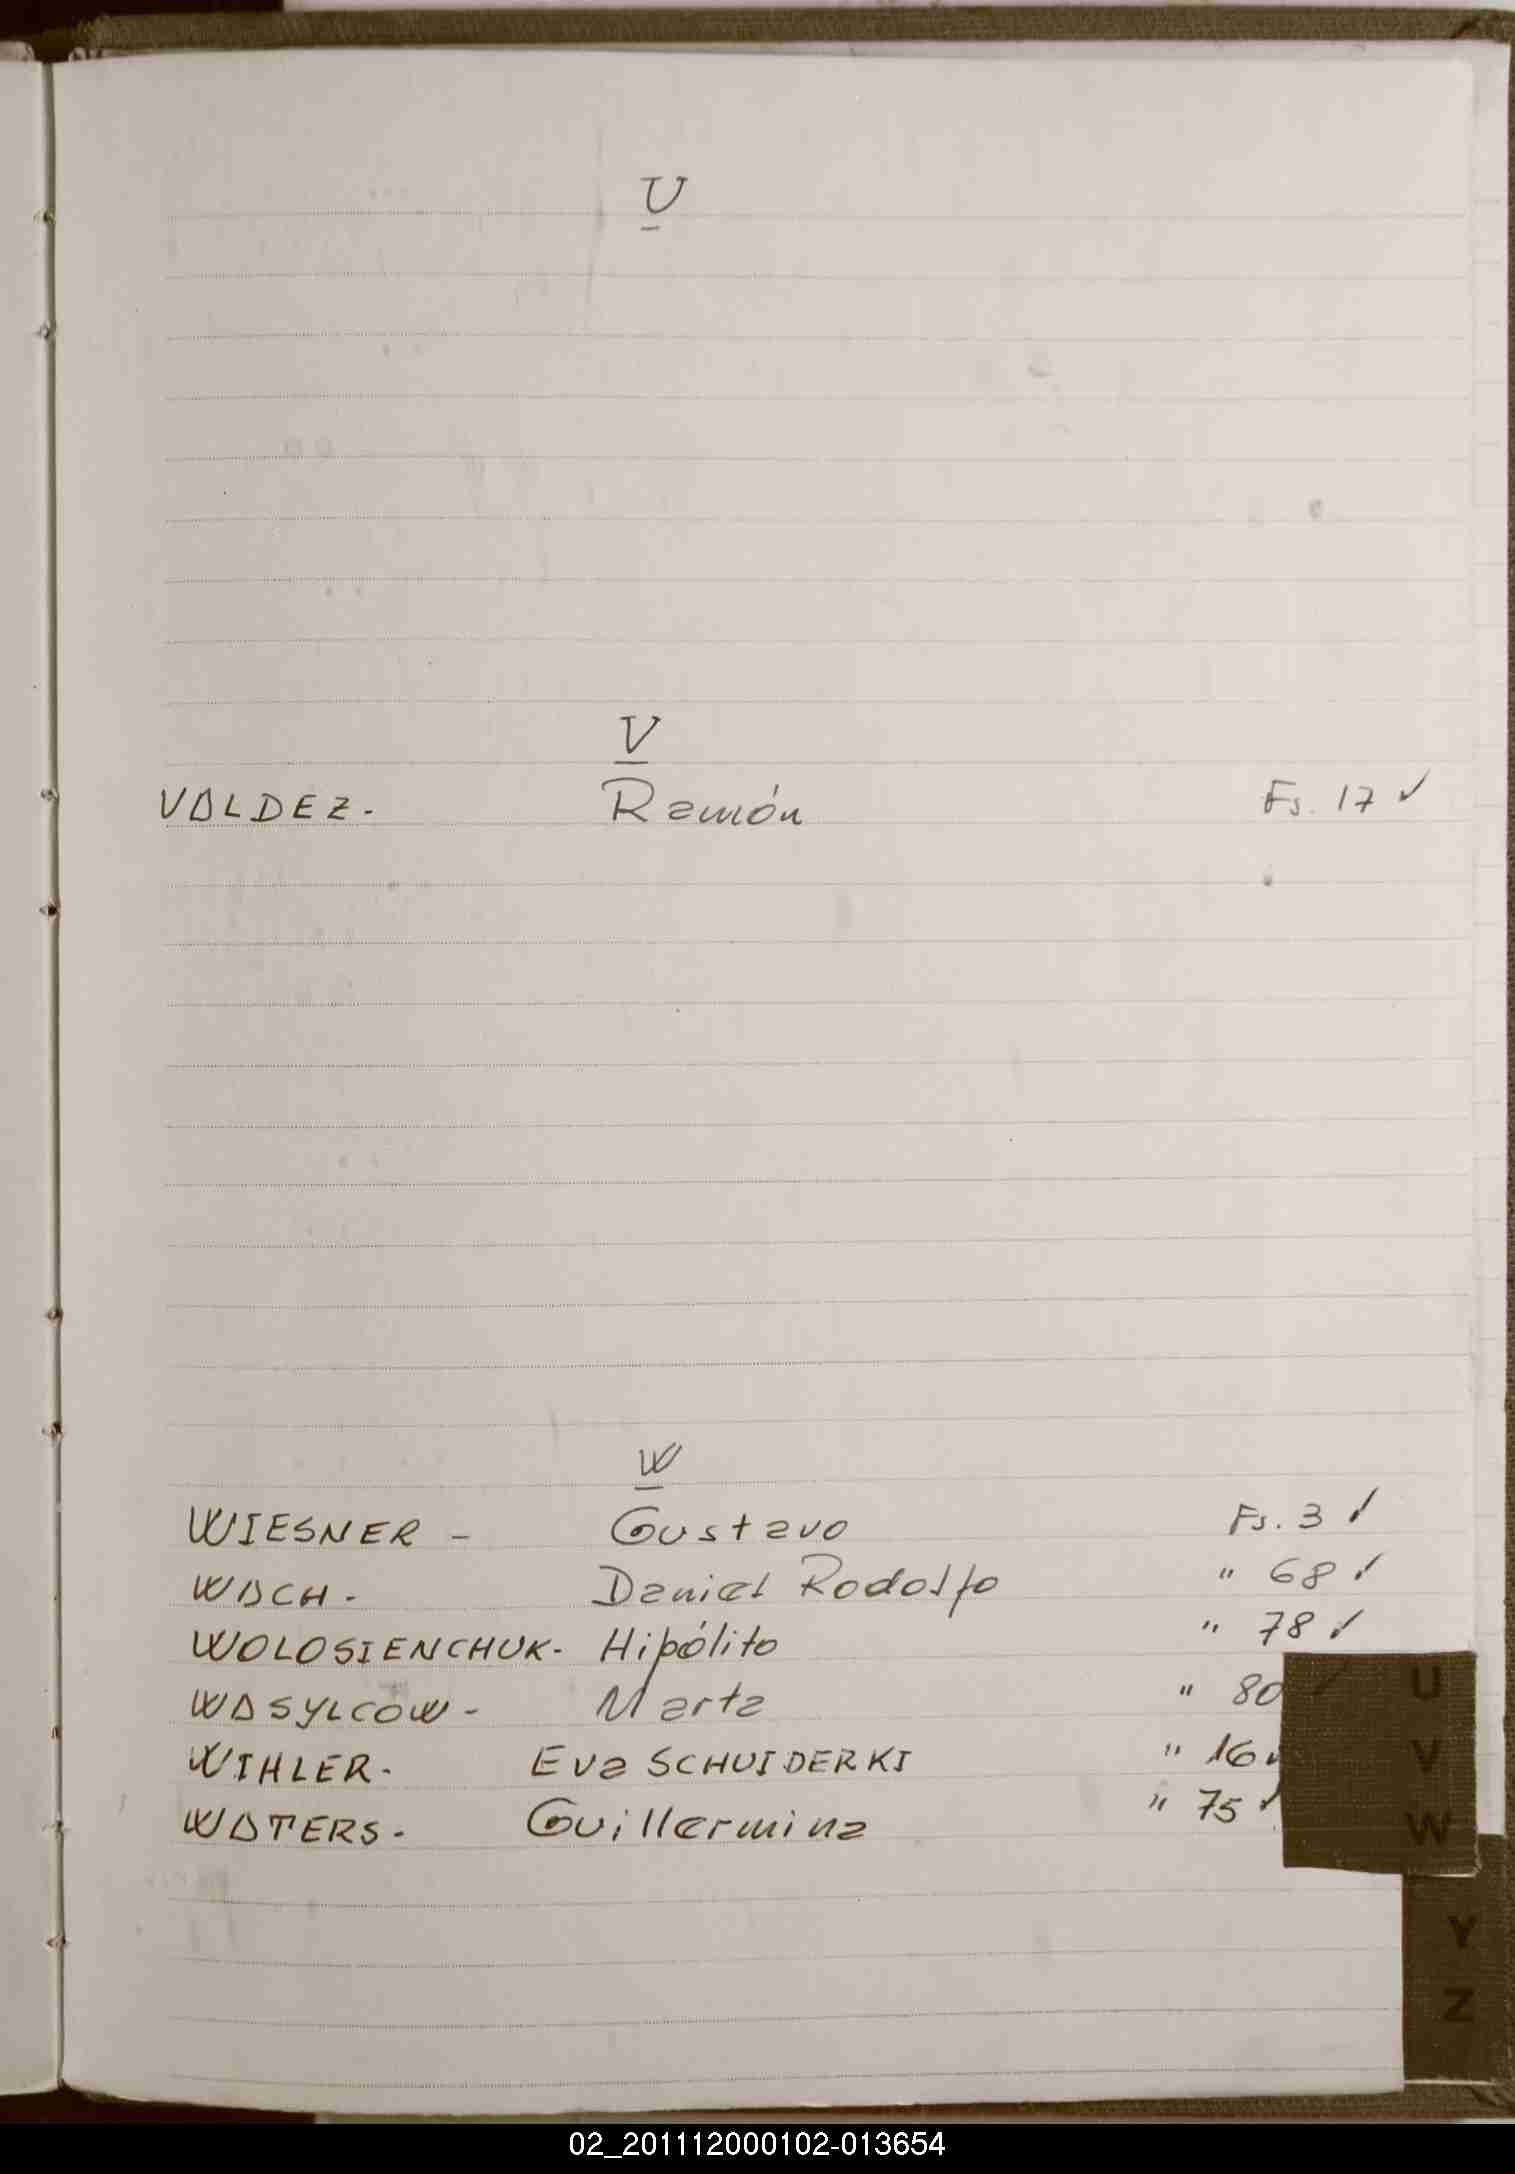 U
V
VALDEZ. Ramón Fs. 17 ✓
W
WIESNER - Gustavo Fs. 3 ✓
WACH. Daniel Rodolfo " 68 ✓
WOLOSIENCHUK. Hipólito " 78 ✓
WASYLCOW - Marta " 80
WIHLER. Eva SCHUIDERKI " 16 ✓
WATERS. Guillermina " 75 ✓
U
V
W
Y
Z
02_201112000102-013654